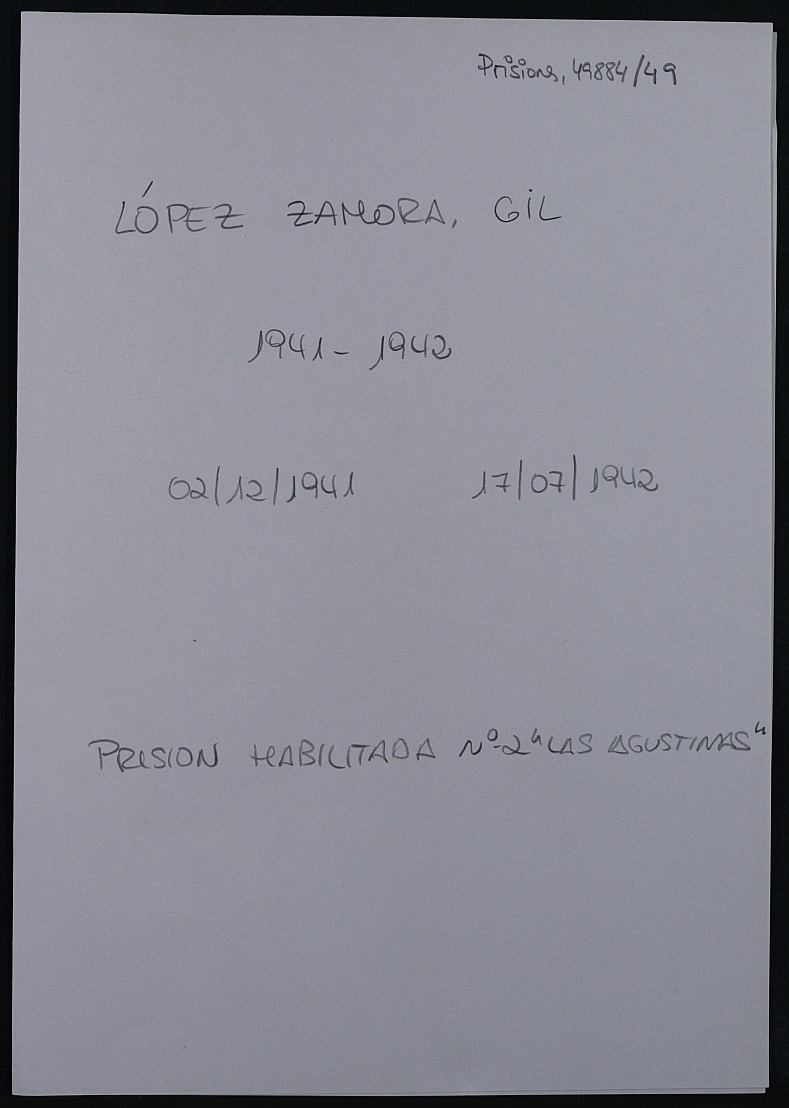 Prisions, 49884/49
LÓPEZ ZAMORA, GIL
1941 - 1942
02/12/1941 17/07/1942
PRISION HABILITADA Nº 2 "LAS AGUSTINAS"